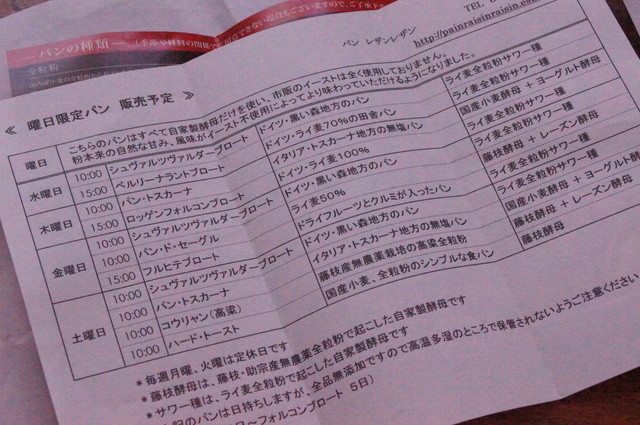 ―パンの種類―
全粒粉
パン レザンレザン
TEL
http://painraisinraisin.co
≪ 曜日限定パン 販売予定 ≫
こちらのパンはすべて自家製酵母だけを使い、市販のイーストは全く使用しておりません。
曜日 粉本来の自然な甘み、風味がイースト不使用によってより味わっていただけるようになりました。
水曜日 10:00 シュヴァルツヴァルダーブロート ドイツ・黒い森地方のパン ライ麦全粒粉サワー種
15:00 ベルリーナラントブロート ドイツ・ライ麦70%の田舎パン ライ麦全粒粉サワー種
木曜日 10:00 パン・トスカーナ イタリア・トスカーナ地方の無塩パン 国産小麦酵母 + ヨーグルト酵母
15:00 ロッゲンフォルコンブロート ドイツ・ライ麦100% ライ麦全粒粉サワー種
金曜日 10:00 シュヴァルツヴァルダーブロート ドイツ・黒い森地方のパン ライ麦全粒粉サワー種
10:00 パン・ド・セーグル ライ麦50% 藤枝酵母 + レーズン酵母
15:00 フルヒテブロート ドライフルーツとクルミが入ったパン ライ麦全粒粉サワー種
土曜日 10:00 シュヴァルツヴァルダーブロート ドイツ・黒い森地方のパン ライ麦全粒粉サワー種
10:00 パン・トスカーナ イタリア・トスカーナ地方の無塩パン 国産小麦酵母 + ヨーグルト酵母
10:00 コウリャン(高粱) 藤枝産無農薬栽培の高粱全粒粉 藤枝酵母 + レーズン酵母
10:00 ハード・トースト 国産小麦、全粒粉のシンプルな食パン 藤枝酵母
*毎週月曜、火曜は定休日です
*藤枝酵母は、藤枝・助宗産無農薬全粒粉で起こした自家製酵母です
*サワー種は、ライ麦全粒粉で起こした自家製酵母です
記のパンは日持ちしますが、全品無添加ですので高温多湿のところで保管されないようご注意ください
日～フォルコンブロート 5日)